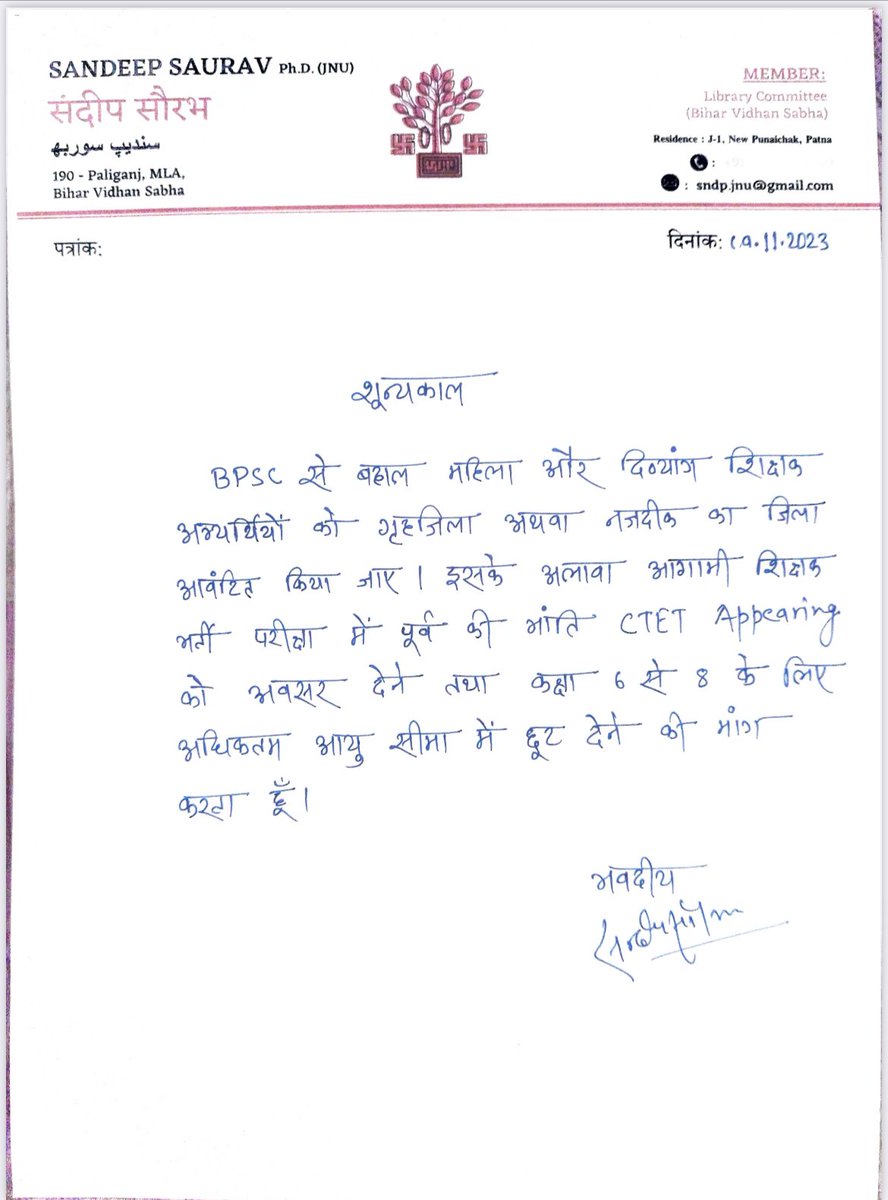 SANDEEP SAURAV Ph.D. (JNU)
संदीप सौरभ
سندیپ سوربھ
190 - Paliganj, MLA,
Bihar Vidhan Sabha
MEMBER:
Library Committee
(Bihar Vidhan Sabha)
Residence : J-1, New Punaichak, Patna
:
: sndp.jnu@gmail.com
पत्रांक:
दिनांक: .11.2023
शून्यकाल
BPSC से बहाल महिला और दिव्यांग शिक्षक
अभ्यर्थियों को गृहजिला अथवा नजदीक का जिला
आवंटित किया जाए । इसके अलावा आगामी शिक्षक
भर्ती परीक्षा में पूर्व की भांति CTET Appearing
को अवसर देने तथा कक्षा 6 से 8 के लिए
अधिकतम आयु सीमा में छूट देने की मांग
करता हूँ ।
भवदीय